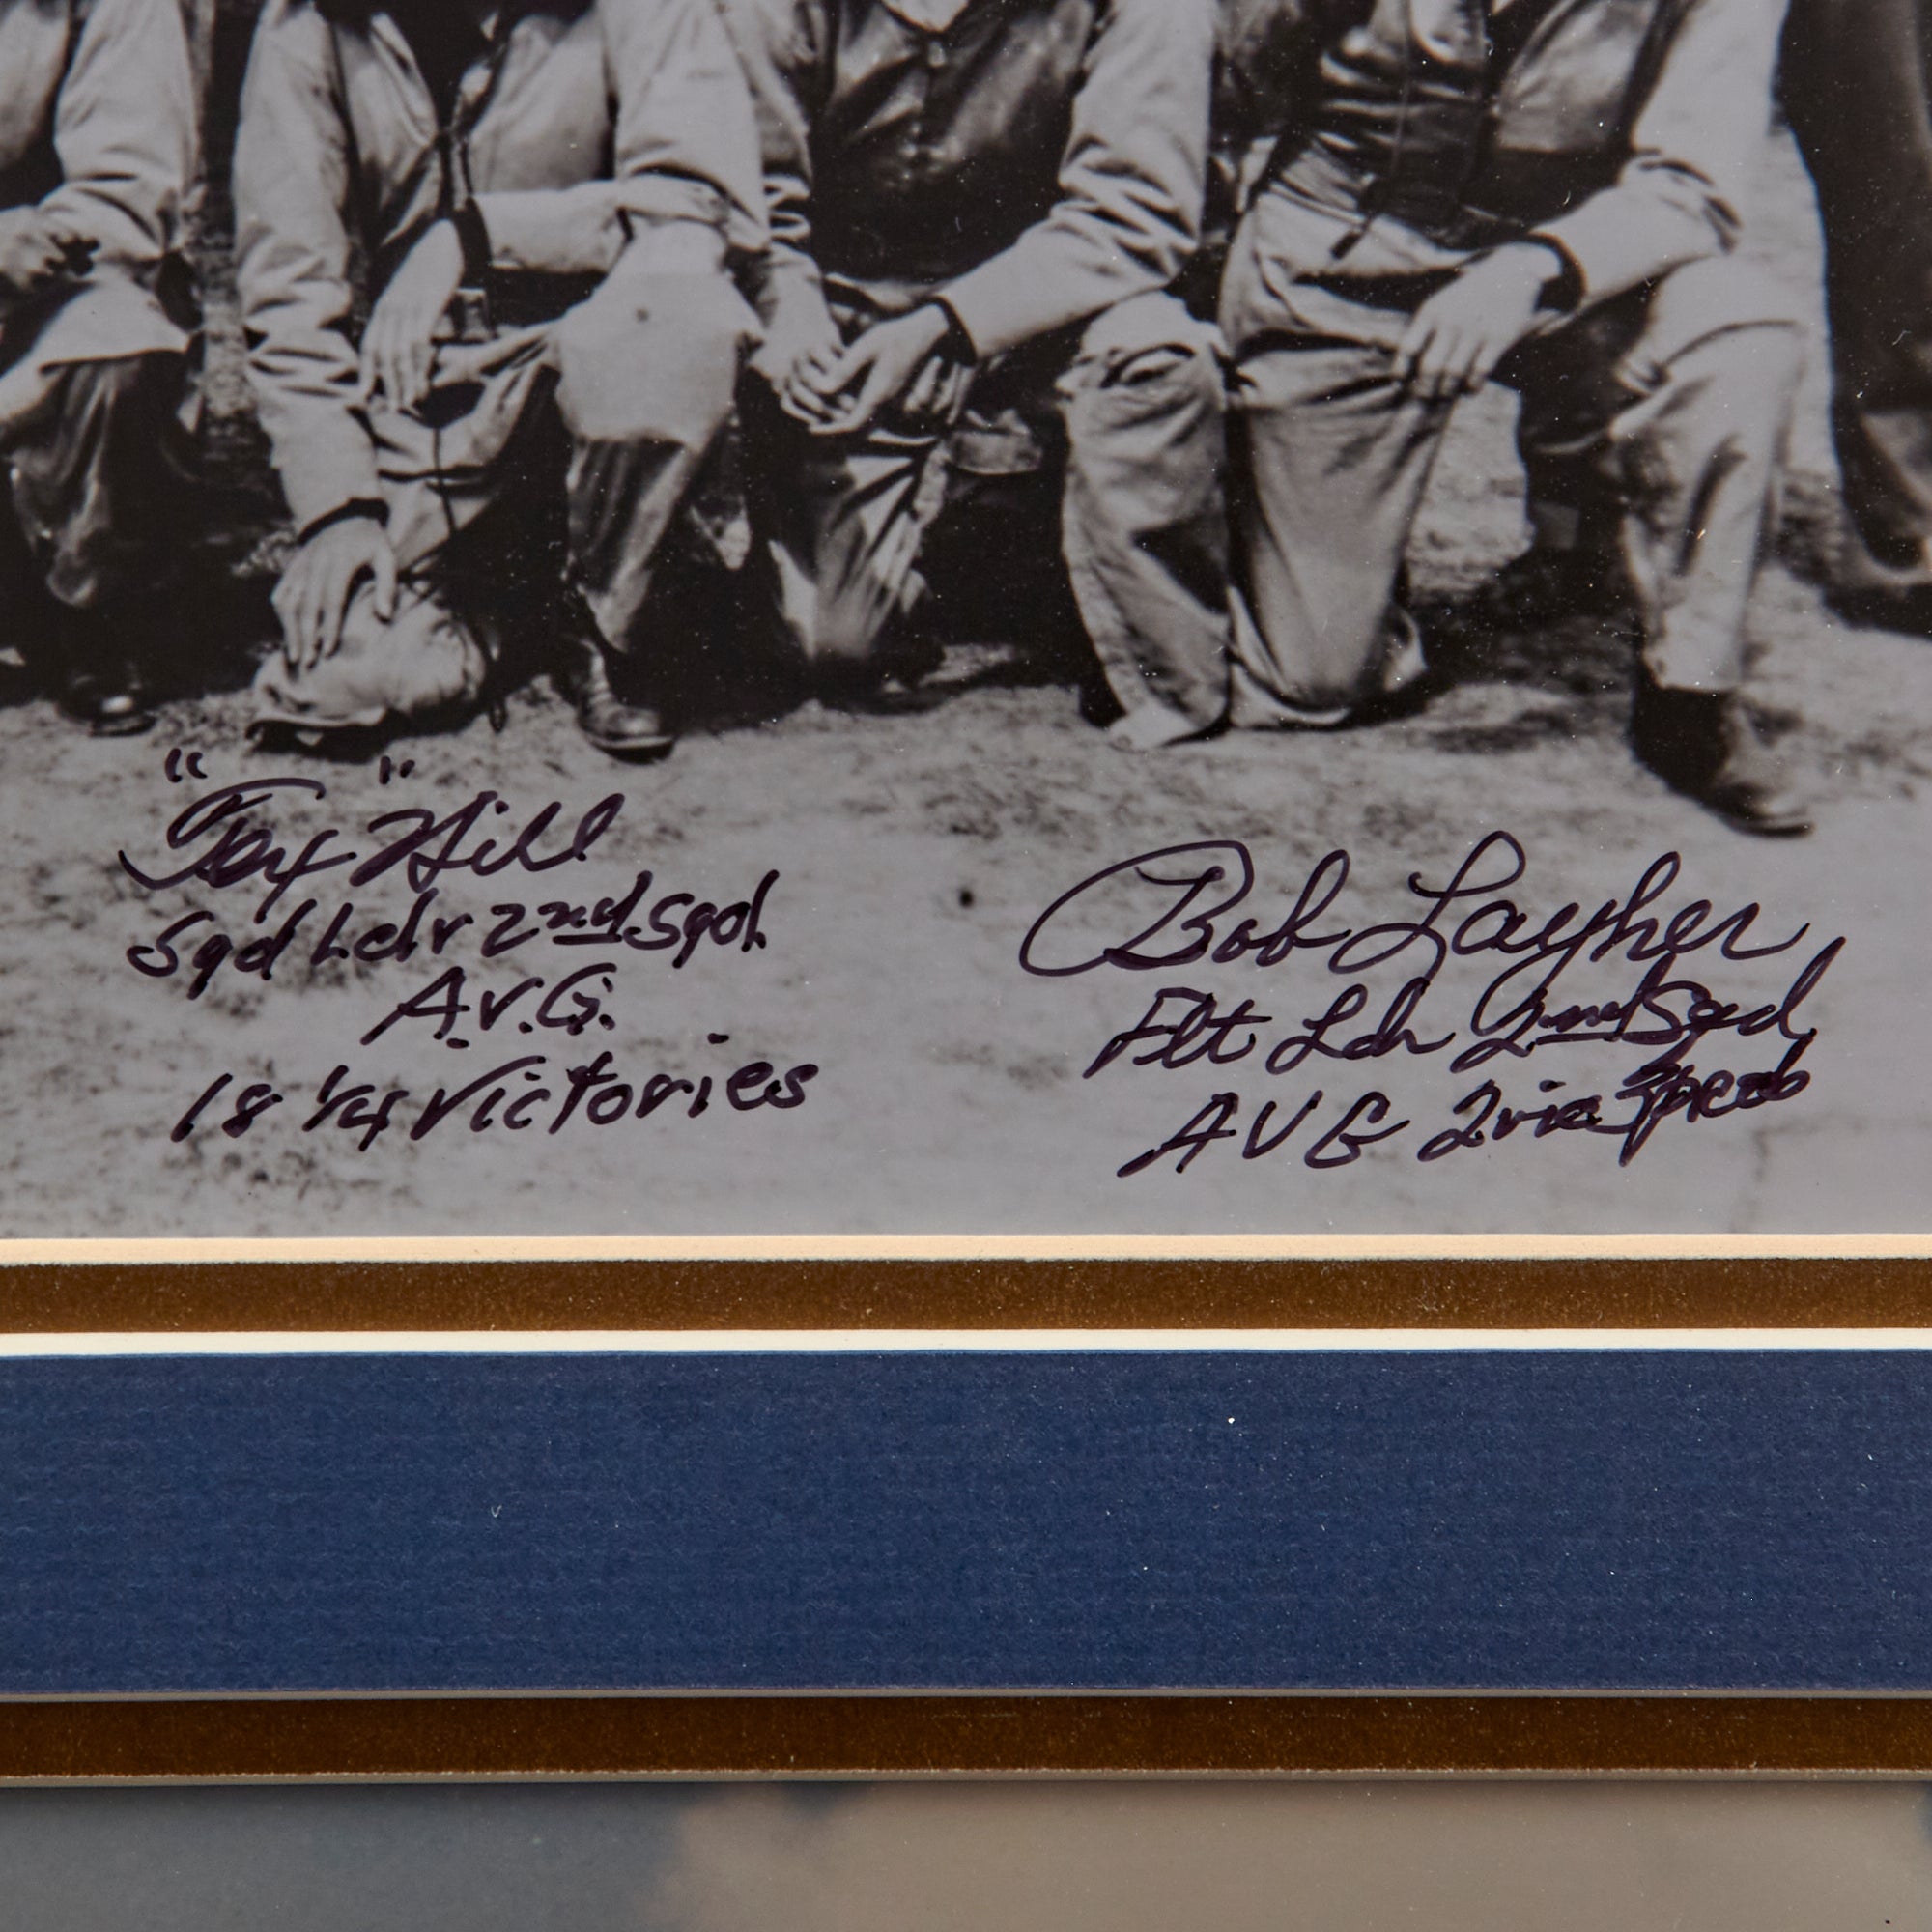 "Tex" Hill
Sqd Ldr 2nd Sqd.
A.V.G.
18 1/4 Victories
Bob Layher
Flt Ldr 2nd Sqd,
AVG 2